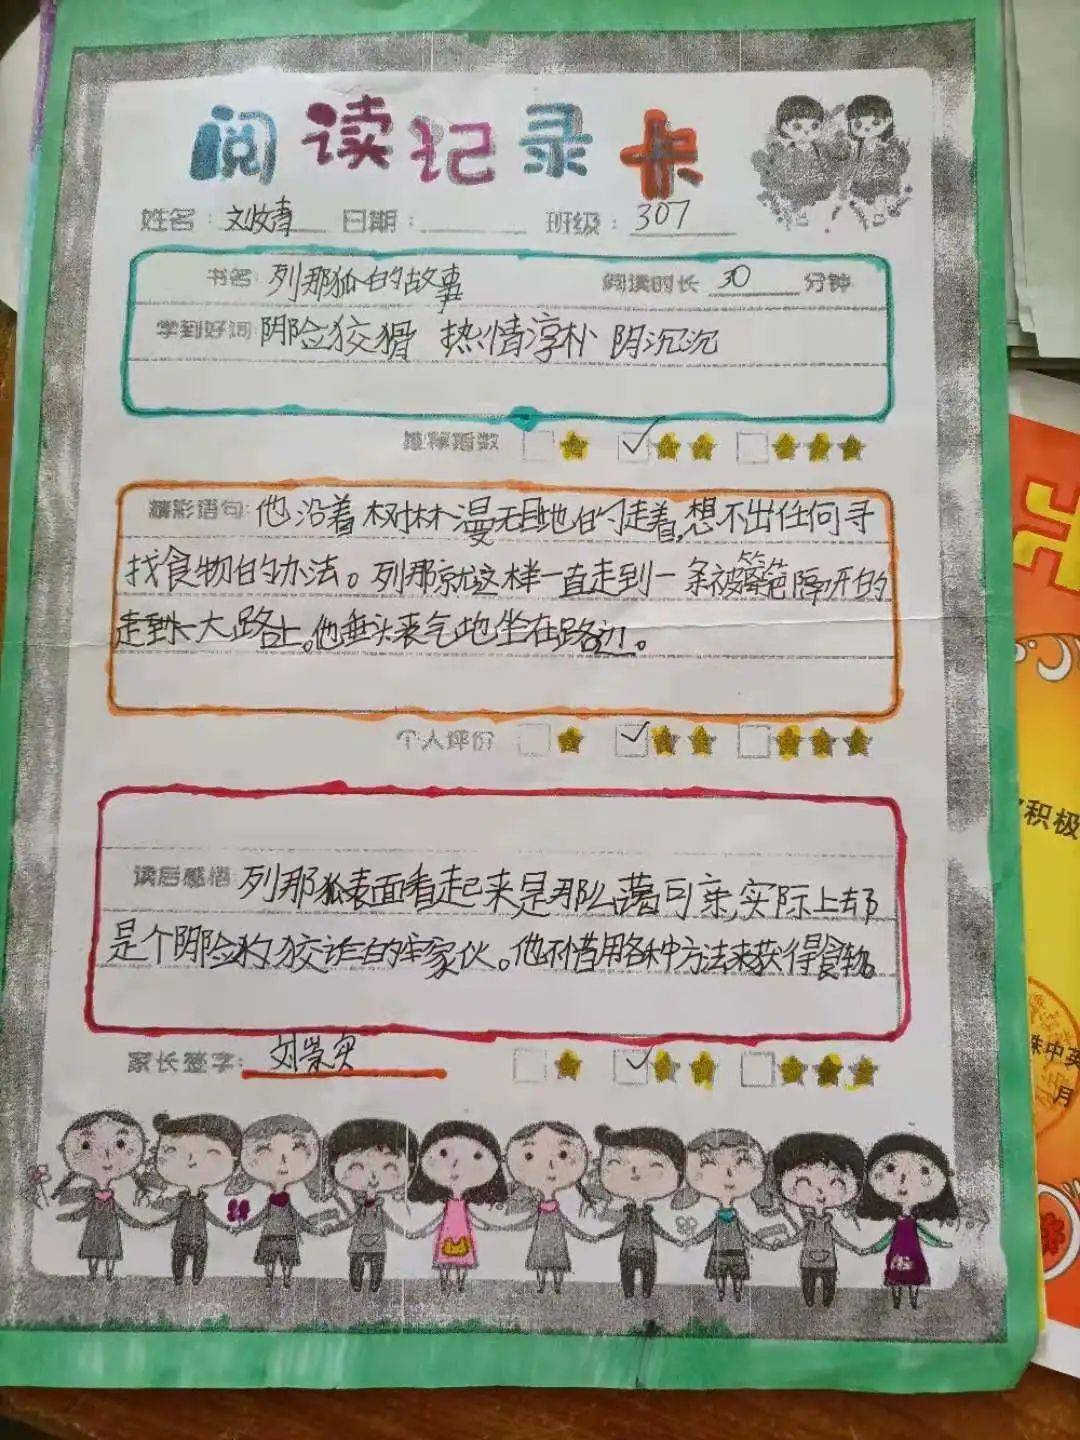 阅读记录卡
姓名：刘妏青 日期： 班级：307
书名：列那狐的故事 阅读时长 30 分钟
学到好词：阴险狡猾 热情淳朴 阴沉沉
推荐指数
精彩语句：他沿着树林漫无目地的走着,想不出任何寻
找食物的办法。列那就这样一直走到一条被篱笆隔开的
走到大路上。他垂头丧气地坐在路边。
个人评价
读后感悟：列那狐表面看起来是那么蔼可亲,实际上却
是个阴险的狡诈的坐家伙。他不惜用各种方法来获得食物。
家长签字：刘崇实
积极